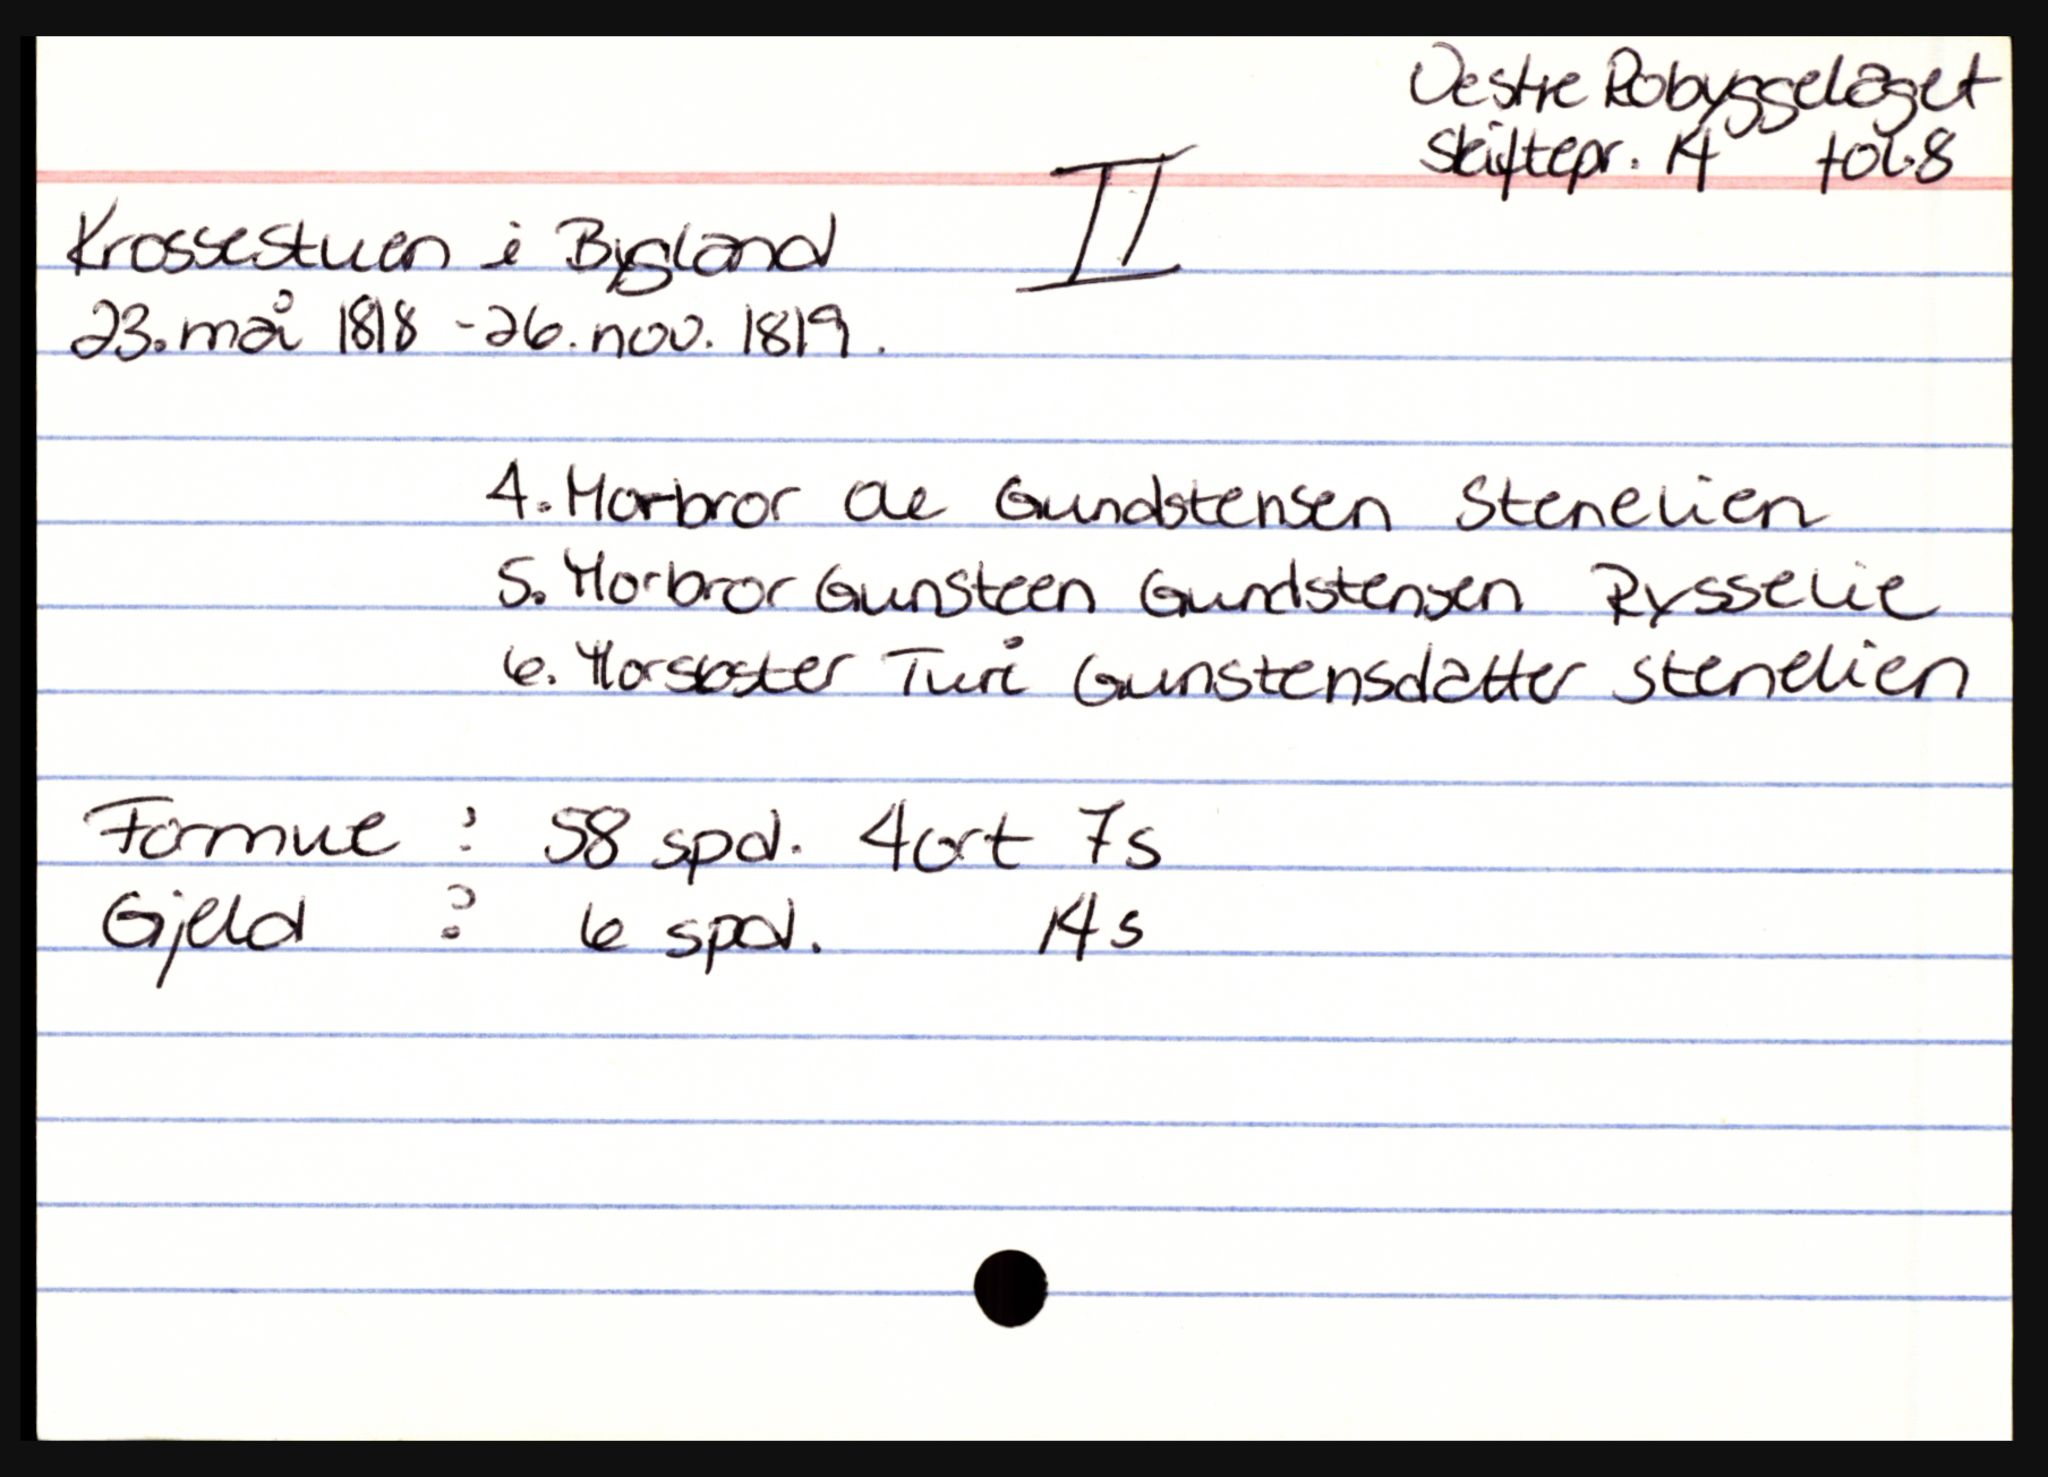 Vestre Robyggelaget
Skiftepr. 14 fol. 8
II
Krossestuen i Bygland
23. mai 1818 - 26. nov. 1819.
4. Morbror Ole Gundstensen Stenelien
5. Morbror Gunsteen Gundstensen Rysselie
6. Morsøster Turi Gunstensdatter Stenelien
Formue : 58 spd. 4 ort 7s
Gjeld : 6 spd. 14s